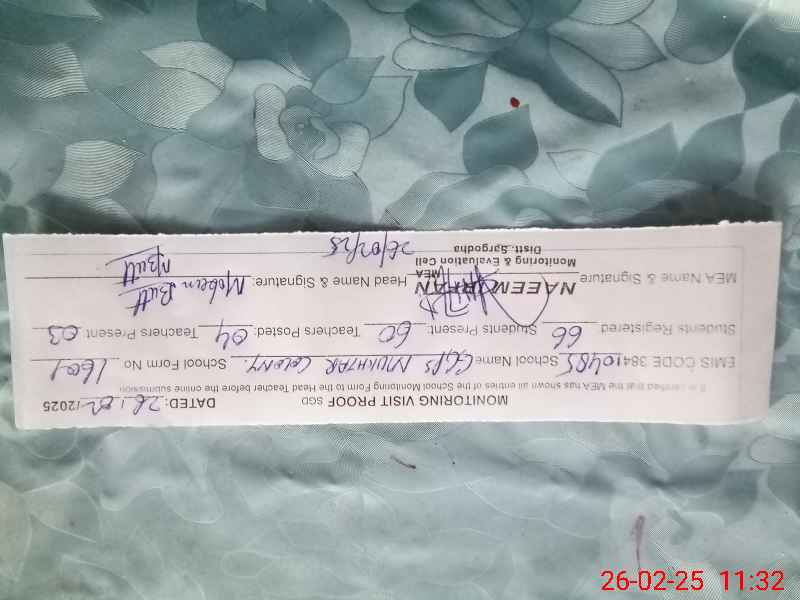 MONITORING VISIT PROOF SGD DATED: 26 / 02 /2025
It is certified that the MEA has shown all entries of the School Monitoring Form to the Head Teacher before the online submission
EMIS CODE 38410485 School Name GGPS MUKHTAR COLONY. School Form No 1601
Students Registered 66 Students Present: 60 Teachers Posted: 04 Teachers Present: 03
MEA Name & Signature NAEEM IRFAN Head Name & Signature: Mobeen Butt
MEA
Monitoring & Evaluation Cell
Distt. Sargodha
MButt
26/02/25
26-02-25 11:32